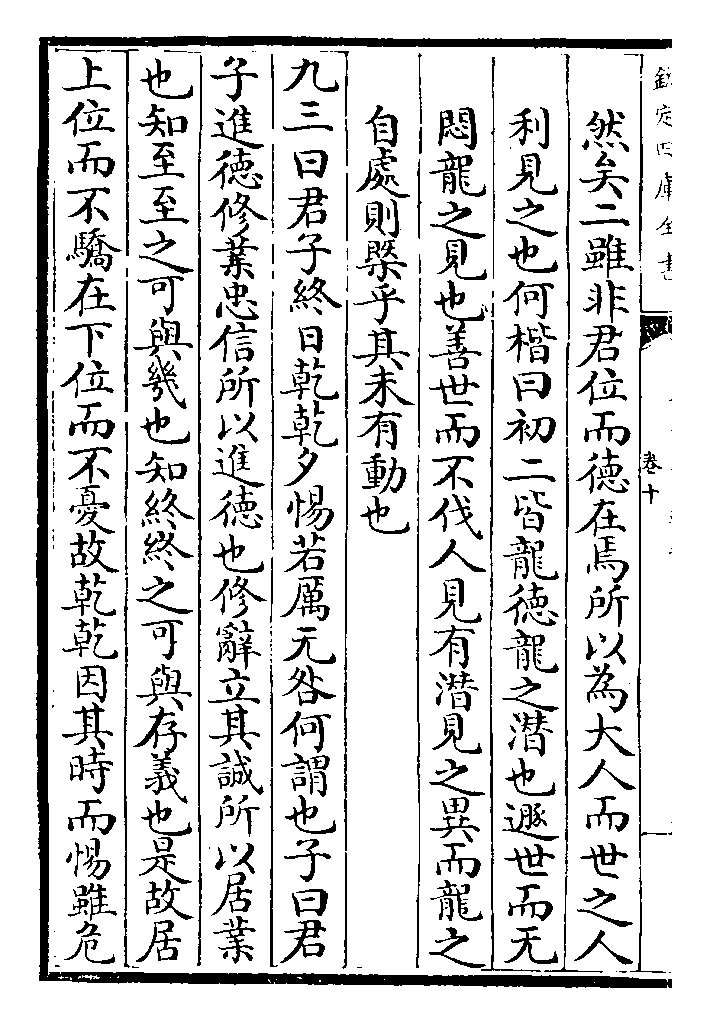 欽定四庫全書
卷十
然矣二雖非君位而徳在焉所以為大人而世之人
利見之也何楷曰初二皆龍徳龍之潛也遯世而无
悶龍之見也善世而不伐人見有潛見之異而龍之
自處則槩乎其未有動也
九三曰君子終日乾乾夕惕若厲无咎何謂也子曰君
子進徳修業忠信所以進徳也修辭立其誠所以居業
也知至至之可與幾也知終終之可與存義也是故居
上位而不驕在下位而不憂故乾乾因其時而惕雖危